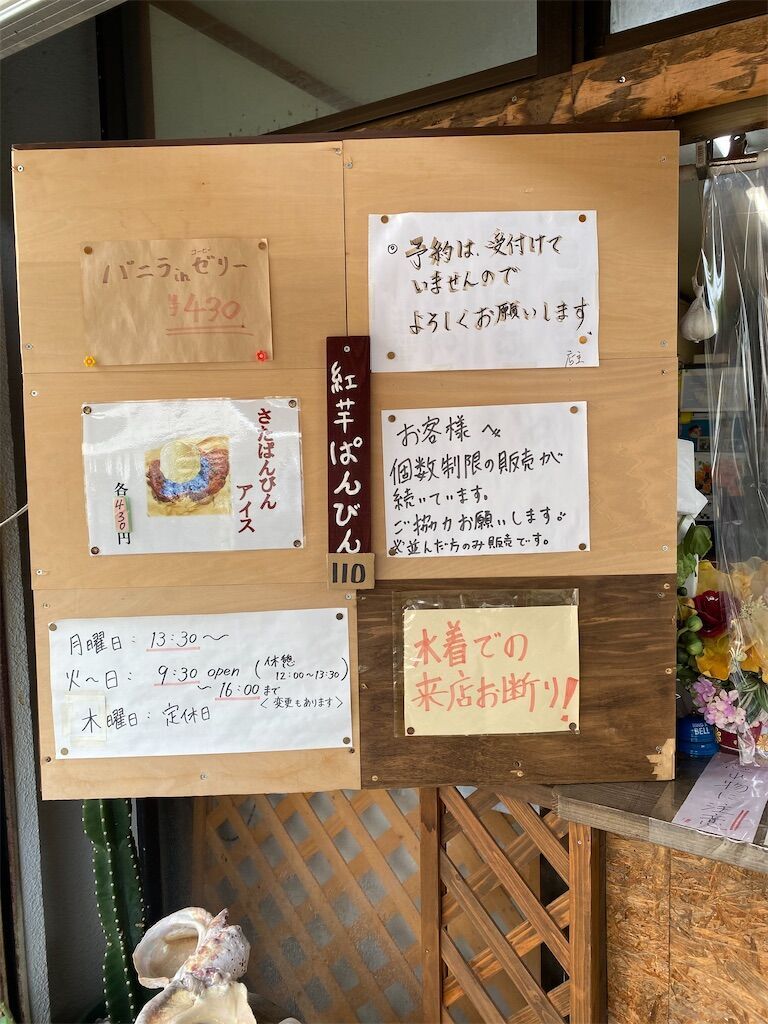 コーヒー
バニラinゼリー
¥430
◎予約は、受付けて
いませんので
よろしくお願いします
店主
さたぱんびん
アイス
各430円
紅芋ぱんびん
110
お客様へ
個数制限の販売が
続いています。
ご協力お願いします。
並んだ方のみ販売です。
月曜日：13:30〜
火〜日：9:30 open (休憩 12:00〜13:30)
〜16:00まで
<変更もあります>
木曜日：定休日
水着での
来店お断り!
BELL